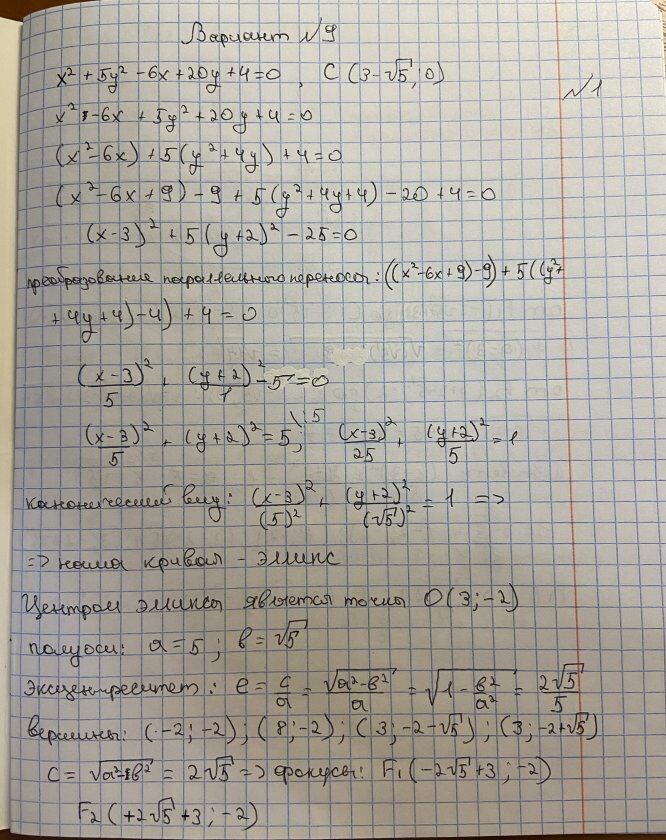 Вариант №9
x² + 5y² - 6x + 20y + 4 = 0 , C (3-√5; 0)
№1
x² - 6x + 5y² + 20y + 4 = 0
(x² - 6x) + 5(y² + 4y) + 4 = 0
(x² - 6x + 9) - 9 + 5(y² + 4y + 4) - 20 + 4 = 0
(x-3)² + 5(y+2)² - 25 = 0
преобразование параллельного переноса: ((x² - 6x + 9) - 9) + 5((y² +
+ 4y + 4) - 4) + 4 = 0
(x-3)²/5 + (y+2)²/1 - 5 = 0
(x-3)²/5 + (y+2)² = 5 |:5 ; (x-3)²/25 + (y+2)²/5 = 1
канонический вид: (x-3)²/(5)² + (y+2)²/(√5)² = 1 =>
=> наша кривая - эллипс
Центром эллипса является точка O(3; -2)
полуоси: a = 5 ; b = √5
Эксцентриситет: e = c/a = √(a²-b²)/a = √(1 - b²/a²) = 2√5/5
вершины: (-2; -2) ; (8; -2) ; (3; -2-√5) ; (3; -2+√5)
c = √(a²-b²) = 2√5 => фокусы: F₁(-2√5+3 ; -2)
F₂(+2√5+3 ; -2)